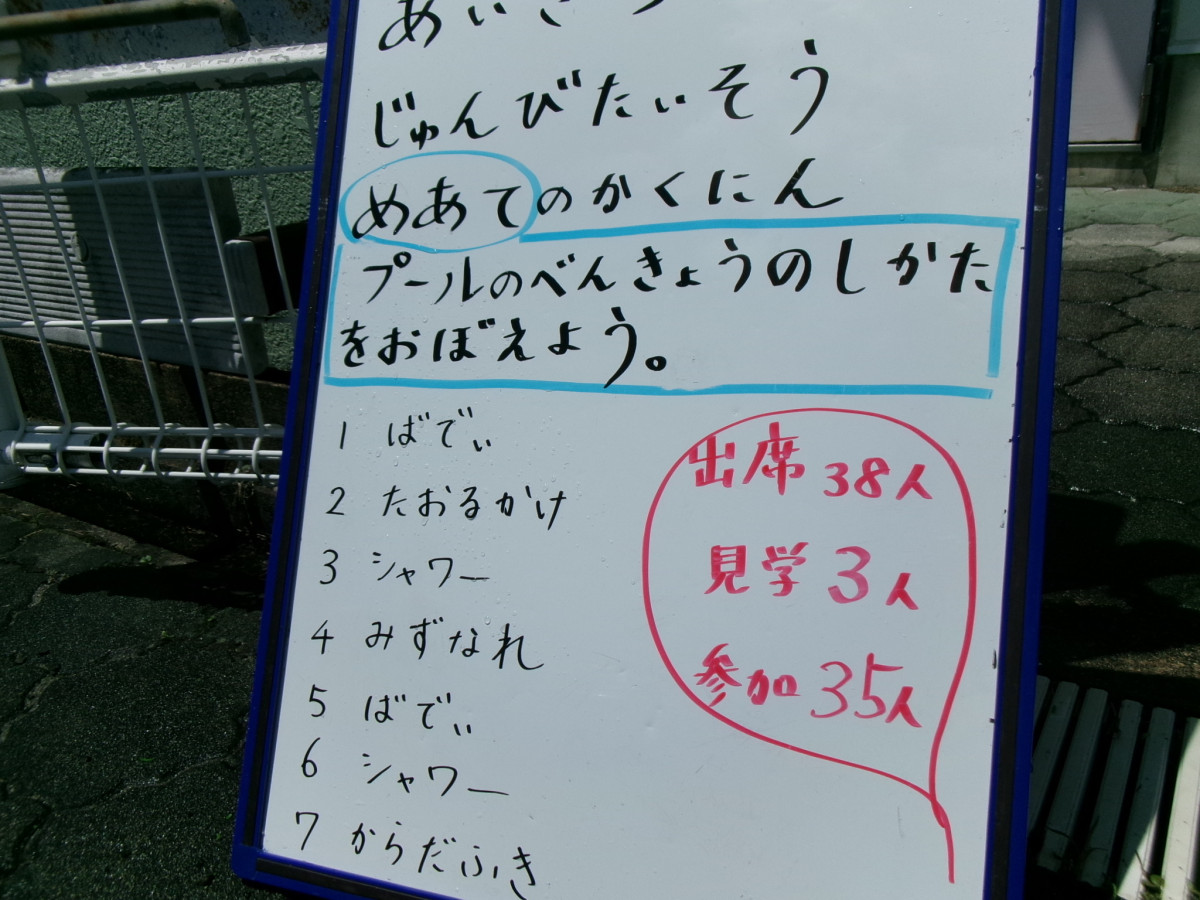 あいさつ
じゅんびたいそう
めあてのかくにん
プールのべんきょうのしかた
をおぼえよう。
1 ばでぃ
2 たおるかけ
3 シャワー
4 みずなれ
5 ばでぃ
6 シャワー
7 からだふき
出席 38人
見学 3人
参加 35人